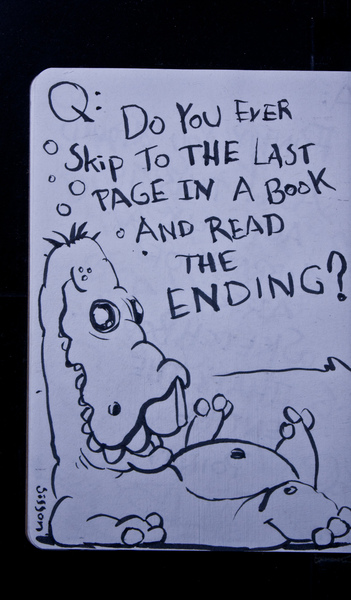 Q: Do You EVER
Skip To THE LAST
PAGE IN A BooK
AND READ
THE
ENDING?
Sisson